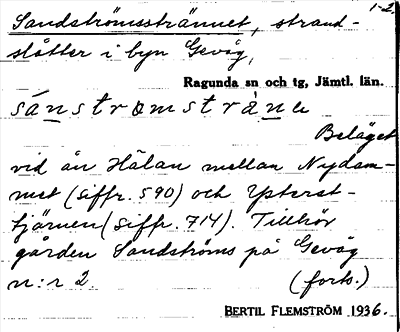 1-2.
Sandströmsstrännet, strand-
slåtter i byn Gevåg,
Ragunda sn och tg, Jämtl. län.
sánstrømstràne
Beläget
vid ån Hälan mellan Nydam-
met (siffr. 590) och Ytterst-
tjärnen (siffr. 714). Tillhör
gården Sandströms på Gevåg
n:r 2 (forts.)
BERTIL FLEMSTRÖM 1936.